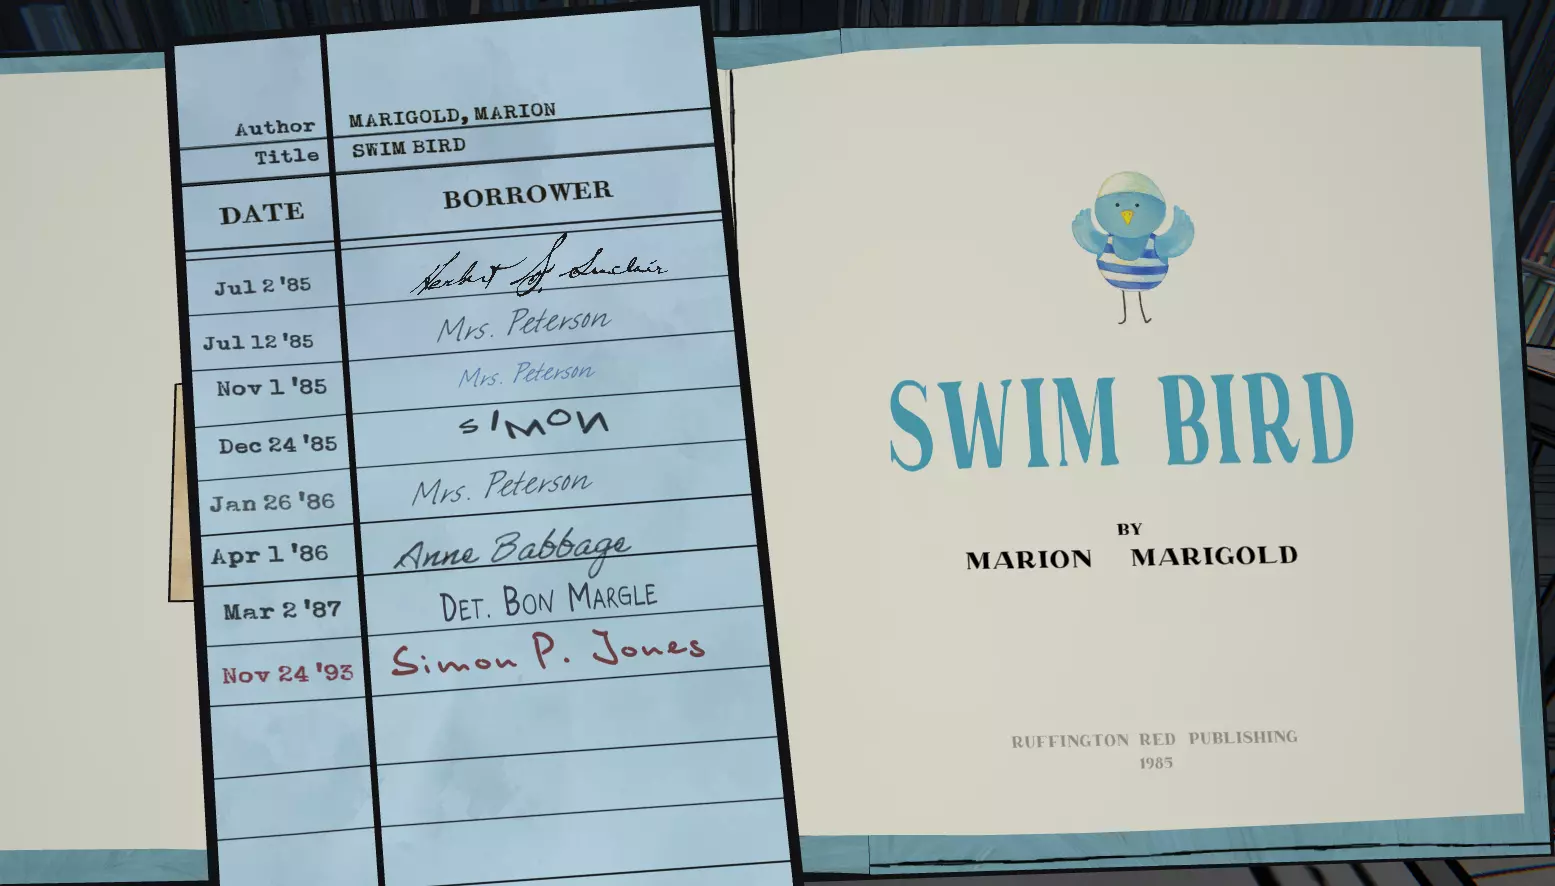 Author MARIGOLD, MARION
Title SWIM BIRD
DATE BORROWER
Jul 2 '85 Herbert S. Sinclair
Jul 12 '85 Mrs. Peterson
Nov 1 '85 Mrs. Peterson
Dec 24 '85 SIMON
Jan 26 '86 Mrs. Peterson
Apr 1 '86 Anne Babbage
Mar 2 '87 DET. BON MARGLE
Nov 24 '93 Simon P. Jones
SWIM BIRD
BY
MARION MARIGOLD
RUFFINGTON RED PUBLISHING
1985